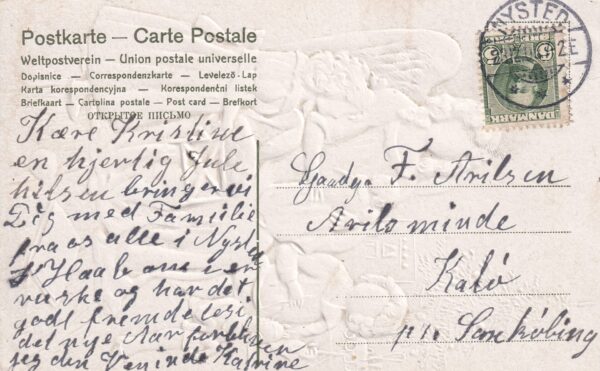 Postkarte — Carte Postale
Weltpostverein — Union postale universelle
Dopisnice — Correspondenzkarte — Levelező-Lap
Karta korespondencyjna — Korespondenční listek
Briefkaart — Cartolina postale — Post card — Brefkort
ОТКРЫТОЕ ПИСЬМО
NYSTED
DANMARK
Kære Kristine
en hjertlig Jule
hilsen bringer vi
Dig med Familie
fra os alle i Nysted
Haab om i er
raske og har det
godt
det nye Aar
jeg din Veninde Katrine
F. Arilsen
Arilsminde
Kalø
pr.